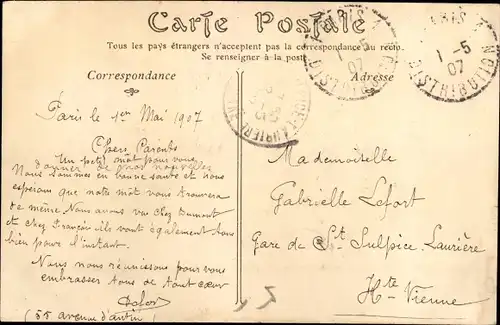 Carte Postale
Tous les pays étrangers n'acceptent pas la correspondance au recto.
Se renseigner à la poste.
Correspondance
Adresse
PARIS
1-5
07
DISTRIBUTION
PARIS
1-5
07
DISTRIBUTION
Paris le 1er Mai 1907
Chers Parents
Un petit mot pour vous
donner de nos nouvelles
Nous sommes en bonne santé et nous
esperont que notre mot vous trouvera
de même. Nous avons vu chez Dumont
et chez François ils vont également tous
bien pour l'instant.
Nous nous réunissons pour vous
embrasser tous de tout cœur
(55 avenue d'antin)
Mademoiselle
Gabrielle Lefort
Gare de St Sulpice Laurière
Hte Vienne